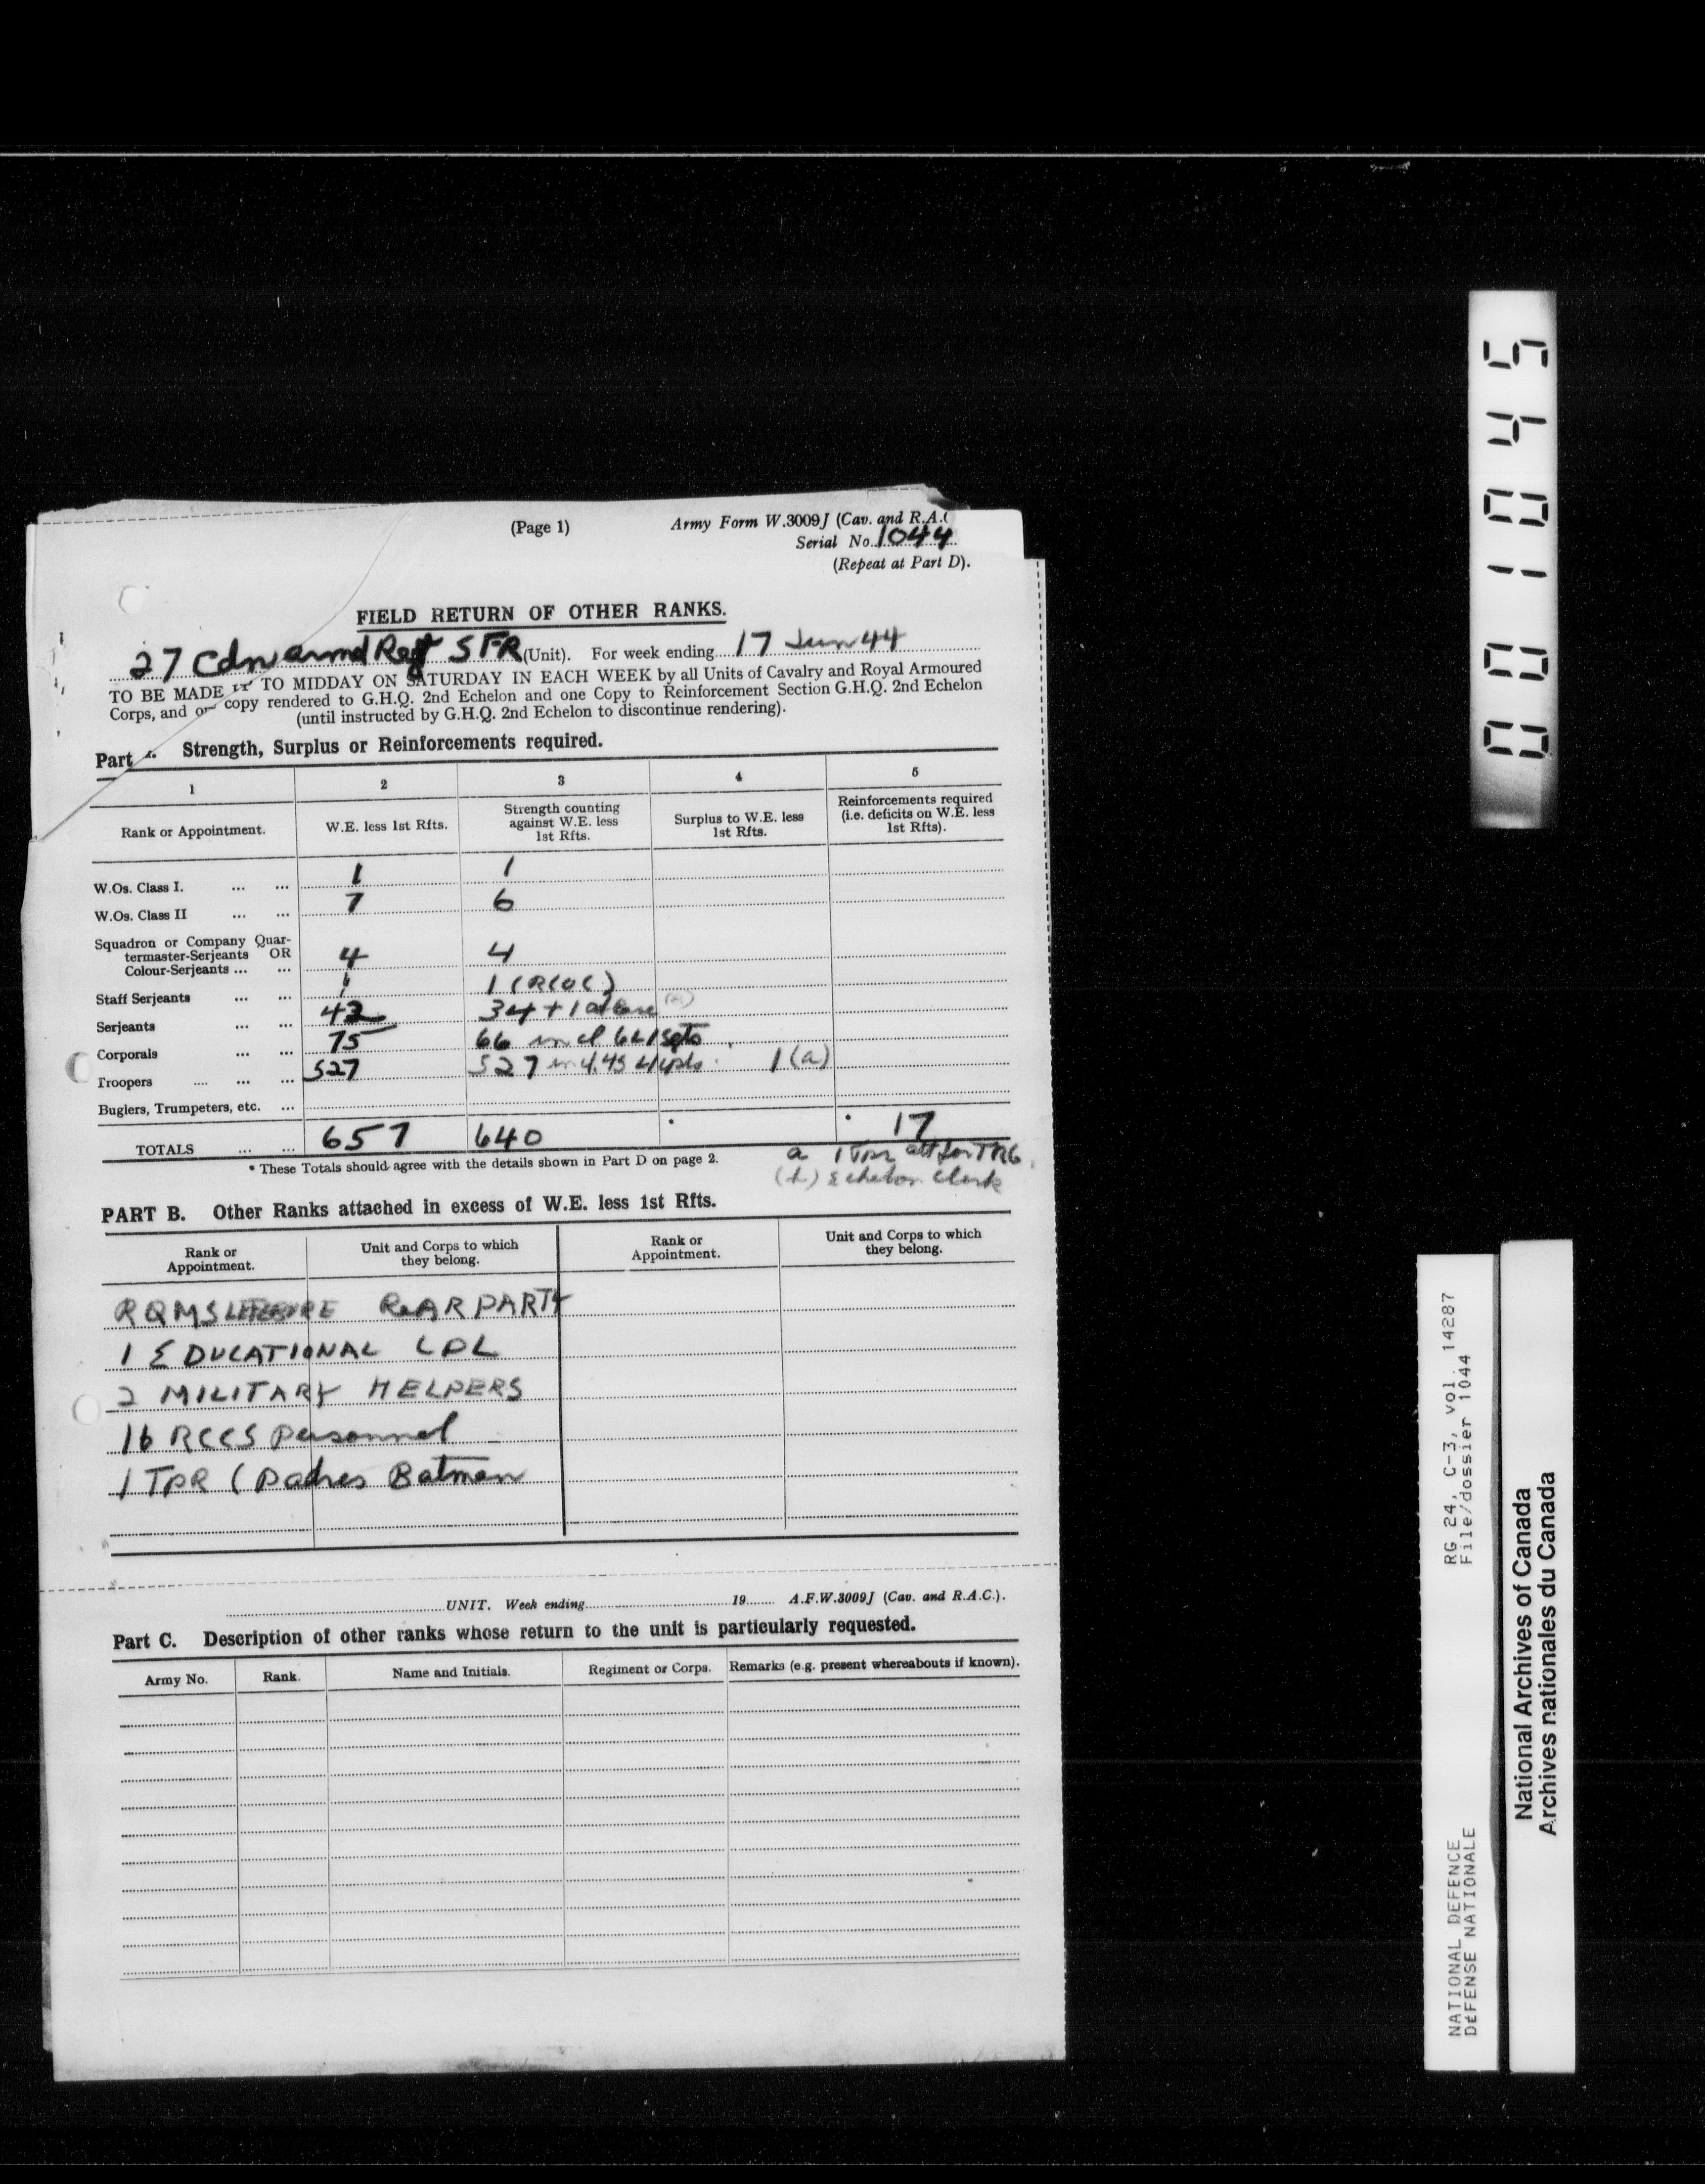 (Page 1)
Army Form W.3009J (Cav. and R.A.C
Serial No. 1044
(Repeat at Part D).
FIELD RETURN OF OTHER RANKS.
27 Cdn armd Regt SFR (Unit). For week ending 17 Jun 44
TO BE MADE TO MIDDAY ON SATURDAY IN EACH WEEK by all Units of Cavalry and Royal Armoured
Corps, and copy rendered to G.H.Q. 2nd Echelon and one Copy to Reinforcement Section G.H.Q. 2nd Echelon
(until instructed by G.H.Q. 2nd Echelon to discontinue rendering).
Part Strength, Surplus or Reinforcements required.
1 2 3 4 5
Rank or Appointment. W.E. less 1st Rfts. Strength counting against W.E. less 1st Rfts. Surplus to W.E. less 1st Rfts. Reinforcements required (i.e. deficits on W.E. less 1st Rfts).
W.Os. Class I. ... ... 1 1
W.Os. Class II ... ... 7 6
Squadron or Company Quar-
termaster-Serjeants OR
Colour-Serjeants ... ... 4 4
Staff Serjeants ... ... 1 1 (RCOC)
Serjeants ... ... 42 34 + 1 at Base
Corporals ... ... 75 66 incl 6 L/Sgts
Troopers .... ... ... 527 527 incl 45 L/Cpls 1 (a)
Buglers, Trumpeters, etc. ...
TOTALS ... ... 657 640 * * 17
* These Totals should agree with the details shown in Part D on page 2.
a 1 Tpr att for TRG
Echelon Clerk
PART B. Other Ranks attached in excess of W.E. less 1st Rfts.
Rank or Appointment. Unit and Corps to which they belong. Rank or Appointment. Unit and Corps to which they belong.
RQMS LEFEBVRE ReAR PARTY
1 EDUCATIONAL CPL
2 MILITARY HELPERS
16 RCCS Personnel
1 TPR (Padres Batman
UNIT. Week ending 19 A.F.W.3009J (Cav. and R.A.C.).
Part C. Description of other ranks whose return to the unit is particularly requested.
Army No. Rank. Name and Initials. Regiment or Corps. Remarks (e.g. present whereabouts if known).
001045
RG 24, C-3, vol. 14287
File/dossier 1044
NATIONAL DEFENCE
DÉFENSE NATIONALE
National Archives of Canada
Archives nationales du Canada